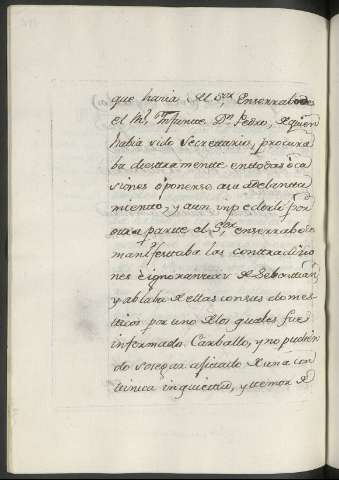 que havia. El S.or Enserrabodes
el M.l Infante D.n Pedro, de quien
havia sido Secretario, procura
ba diestramente en todas oca
siones oponerse a su adelanta
miento, y aun inpedirle; por
otra parte el S.or enserrabodes
manifestaba las contradicio
nes è ignorancias de Sebastian,
y ablaba de ellas con sus domes
ticos por uno de los quales fue
informado Carballo, y no pudien
do sosegar agitado de una con
tinua inquietud, y temor de